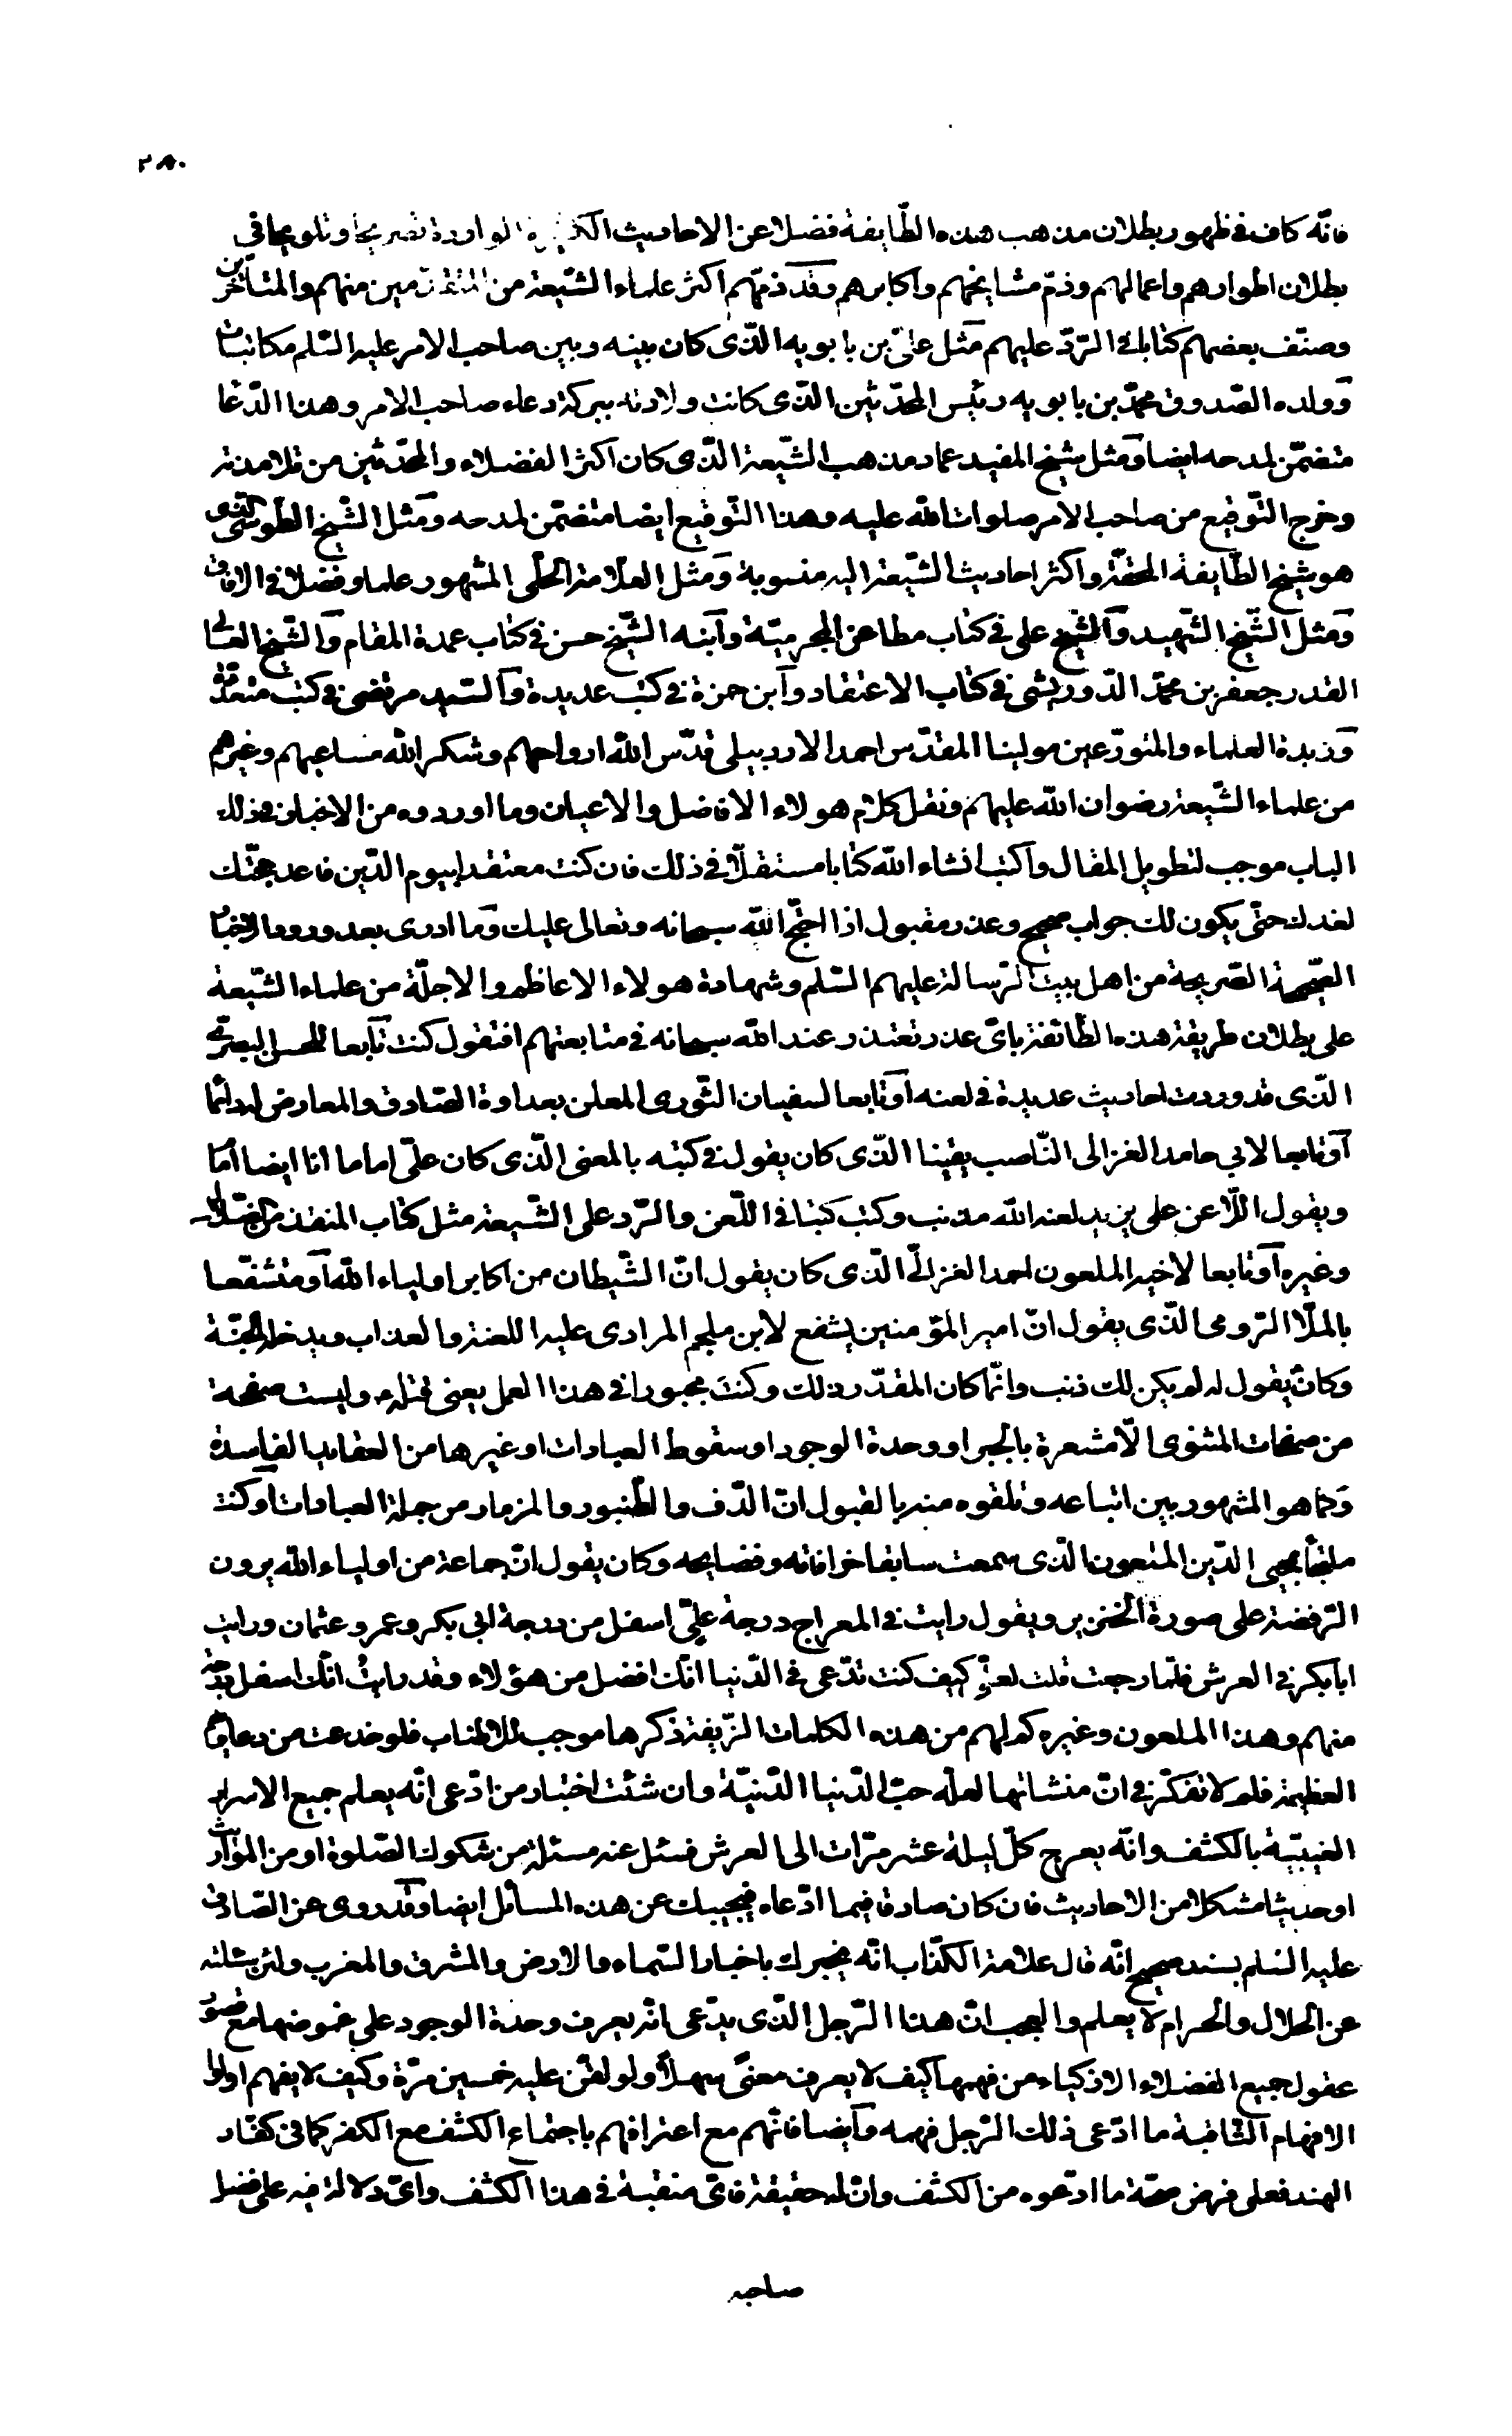 ٢٨٠
فانّه كاف فى ظهور بطلان مذهب هذه الطّايفة فضلا عن الاحاديث الكثيرة الواردة تصريحا وتلويحا فى
بطلان اطوارهم واعمالهم وذمّ مشايخهم واكابرهم وقد ذمّهم اكثر علماء الشّيعة من المتقدّمين منهم والمتأخّرين
وصنّف بعضهم كتابا فى الرّدّ عليهم مثل علىّ بن بابويه الّذى كان بينه وبين صاحب الامر عليه السّلم مكاتبات
وولده الصّدوق محمّد بن بابويه رئيس المحدّثين الّذى كانت ولادته ببركة دعاء صاحب الامر وهذا الدّعا
متضمّن لمدحه ايضا ومثل شيخ المفيد عماد مذهب الشّيعة الّذى كان اكثر الفضلاء والمحدّثين من تلامذته
وخرج التّوقيع من صاحب الامر صلوات الله عليه وهذا التّوقيع ايضا متضمّن لمدحه ومثل الشّيخ الطّوسّى الّذى
هو شيخ الطّايفة المحقّة واكثر احاديث الشّيعة اليه منسوبة ومثل العلّامة الحلّى المشهور علما وفضلا فى الافاق
ومثل الشّيخ الشّهيد والشّيخ على فى كتاب مطاعن المجرميّة وابنه الشّيخ حسن فى كتاب عمدة المقام والشّيخ العالى
القدر جعفر بن محمّد الدّوريشى فى كتاب الاعتقاد وابن حمزة فى كتب عديدة والسّيد مرتضى فى كتب متعدّدة
وزبدة العلماء والمتورّعين مولينا المقدّس احمد الاردبيلى قدّس الله ارواحهم وشكر الله مساعيهم وغيرهم
من علماء الشّيعة رضوان الله عليهم ونقل كلام هولاء الافاضل والاعيان وما اوردوه من الاخبار فى ذلك
الباب موجب لتطويل المقال واكتب انشاء الله كتابا مستقلّا فى ذلك فان كنت معتقدا بيوم الدّين فاعد حجّتك
لغدك حتّى يكون لك جواب صحيح وعذر مقبول اذا احتجّ الله سبحانه وتعالى عليك وما ادرى بعد ورود الاخبار
الصّحيحة الصّريحة من اهل بيت الرّسالة عليهم السّلم وشهادة هولاء الاعاظم والاجلّة من علماء الشّيعة
على بطلان طريقة هذه الطّائفة باىّ عذر تعتذر عند الله سبحانه فى متابعتهم افتقول كنت تابعا للحسن البصرىّ
الّذى قد وردت احاديث عديدة فى لعنه او تابعا لسفيان الثّورى المعلن بعداوة الصّادق والمعارض له دائما
او تابعا لابي حامد الغزالى النّاصب يقينا الّذى كان يقول فى كتبه بالمعنى الّذى كان علىّ اماما انا ايضا امام
ويقول اللّاعن على يزيد لعنه الله مذنب وكتب كتبا فى اللّعن والرّد على الشّيعة مثل كتاب المنقذ من الضّلال
وغيره او تابعا لاخيه الملعون احمد الغزالىّ الّذى كان يقول انّ الشّيطان من اكابر اولياء الله او متشفّعا
بالملّا الرّومى الّذى يقول انّ امير المؤمنين يشفع لابن ملجم المرادى عليه اللعنة والعذاب ويدخله الجنّة
وكان يقول له لم يكن لك ذنب وانّما كان المقدّر ذلك وكنت مجبورا فى هذا العمل يعنى قتله وليست صفحة
من صفحات المثنوى الّا مشعرة بالجبر او وحدة الوجود او سقوط العبادات او غيرها من العقايد الفاسدة
وكما هو المشهور بين اتباعه وتلقوه منه بالقبول انّ الدّف والطّنبور والمزمار من جملة العبادات او كنت
ملتجأ بمحيى الدّين الملعون الّذى سمعت سابقا خرافاته وفضايحه وكان يقول انّ جماعة من اولياء الله يرون
الرّفضة على صورة الخنزير ويقول رايت فى المعراج درجة علىّ اسفل من درجة ابى بكر وعمر وعثمان ورايت
ابا بكر فى العرش فلمّا رجعت قلت لعلىّ كيف كنت تدّعى فى الدّنيا انّك افضل من هؤلاء وقد رايت انّك اسفل درجة
منهم وهذا الملعون وغيره كم لهم من هذه الكلمات الزّيفة ذكرها موجب للاطناب فلو خدعت من دعاويهم
العظيمة فلم لا تفكّر فى انّ منشائها لعلّه حبّ الدّنيا الدّنيّة وان شئت اختبار من ادّعى انّه يعلم جميع الاسرار
الغيبيّة بالكشف وانّه يعرج كلّ ليلة عشر مرّات الى العرش فسئل عنه مسئلة من شكوك الصّلوة او من المواريث
او حديثا مشكلا من الاحاديث فان كان صادقا فيما ادّعاه فيجيبك عن هذه المسائل ايضا وقد روى عن الصّادق
عليه السّلم بسند صحيح انّه قال علامة الكذّاب انّه يخبرك باخبار السّماء والارض والمشرق والمغرب ولئن سئلته
عن الحلال والحرام لا يعلم والعجب انّ هذا الرّجل الّذى يدّعى انّه يعرف وحدة الوجود على غموضها مع قصور
عقول جميع الفضلاء الاذكياء من فهمها كيف لا يعرف معنى سهلا ولو لقّن عليه خمسين مرّة وكيف لا يفهم اولوا
الافهام الثّاقبة ما ادّعى ذلك الرّجل فهمه وايضا فانّهم مع اعترافهم باجتماع الكشف مع الكفر كما فى كفّار
الهند فعلى فرض صحّة ما ادّعوه من الكشف وانّ له حقيقة فاىّ منقبة فى هذا الكشف واىّ دلالة فيه على فضل
صاحبه